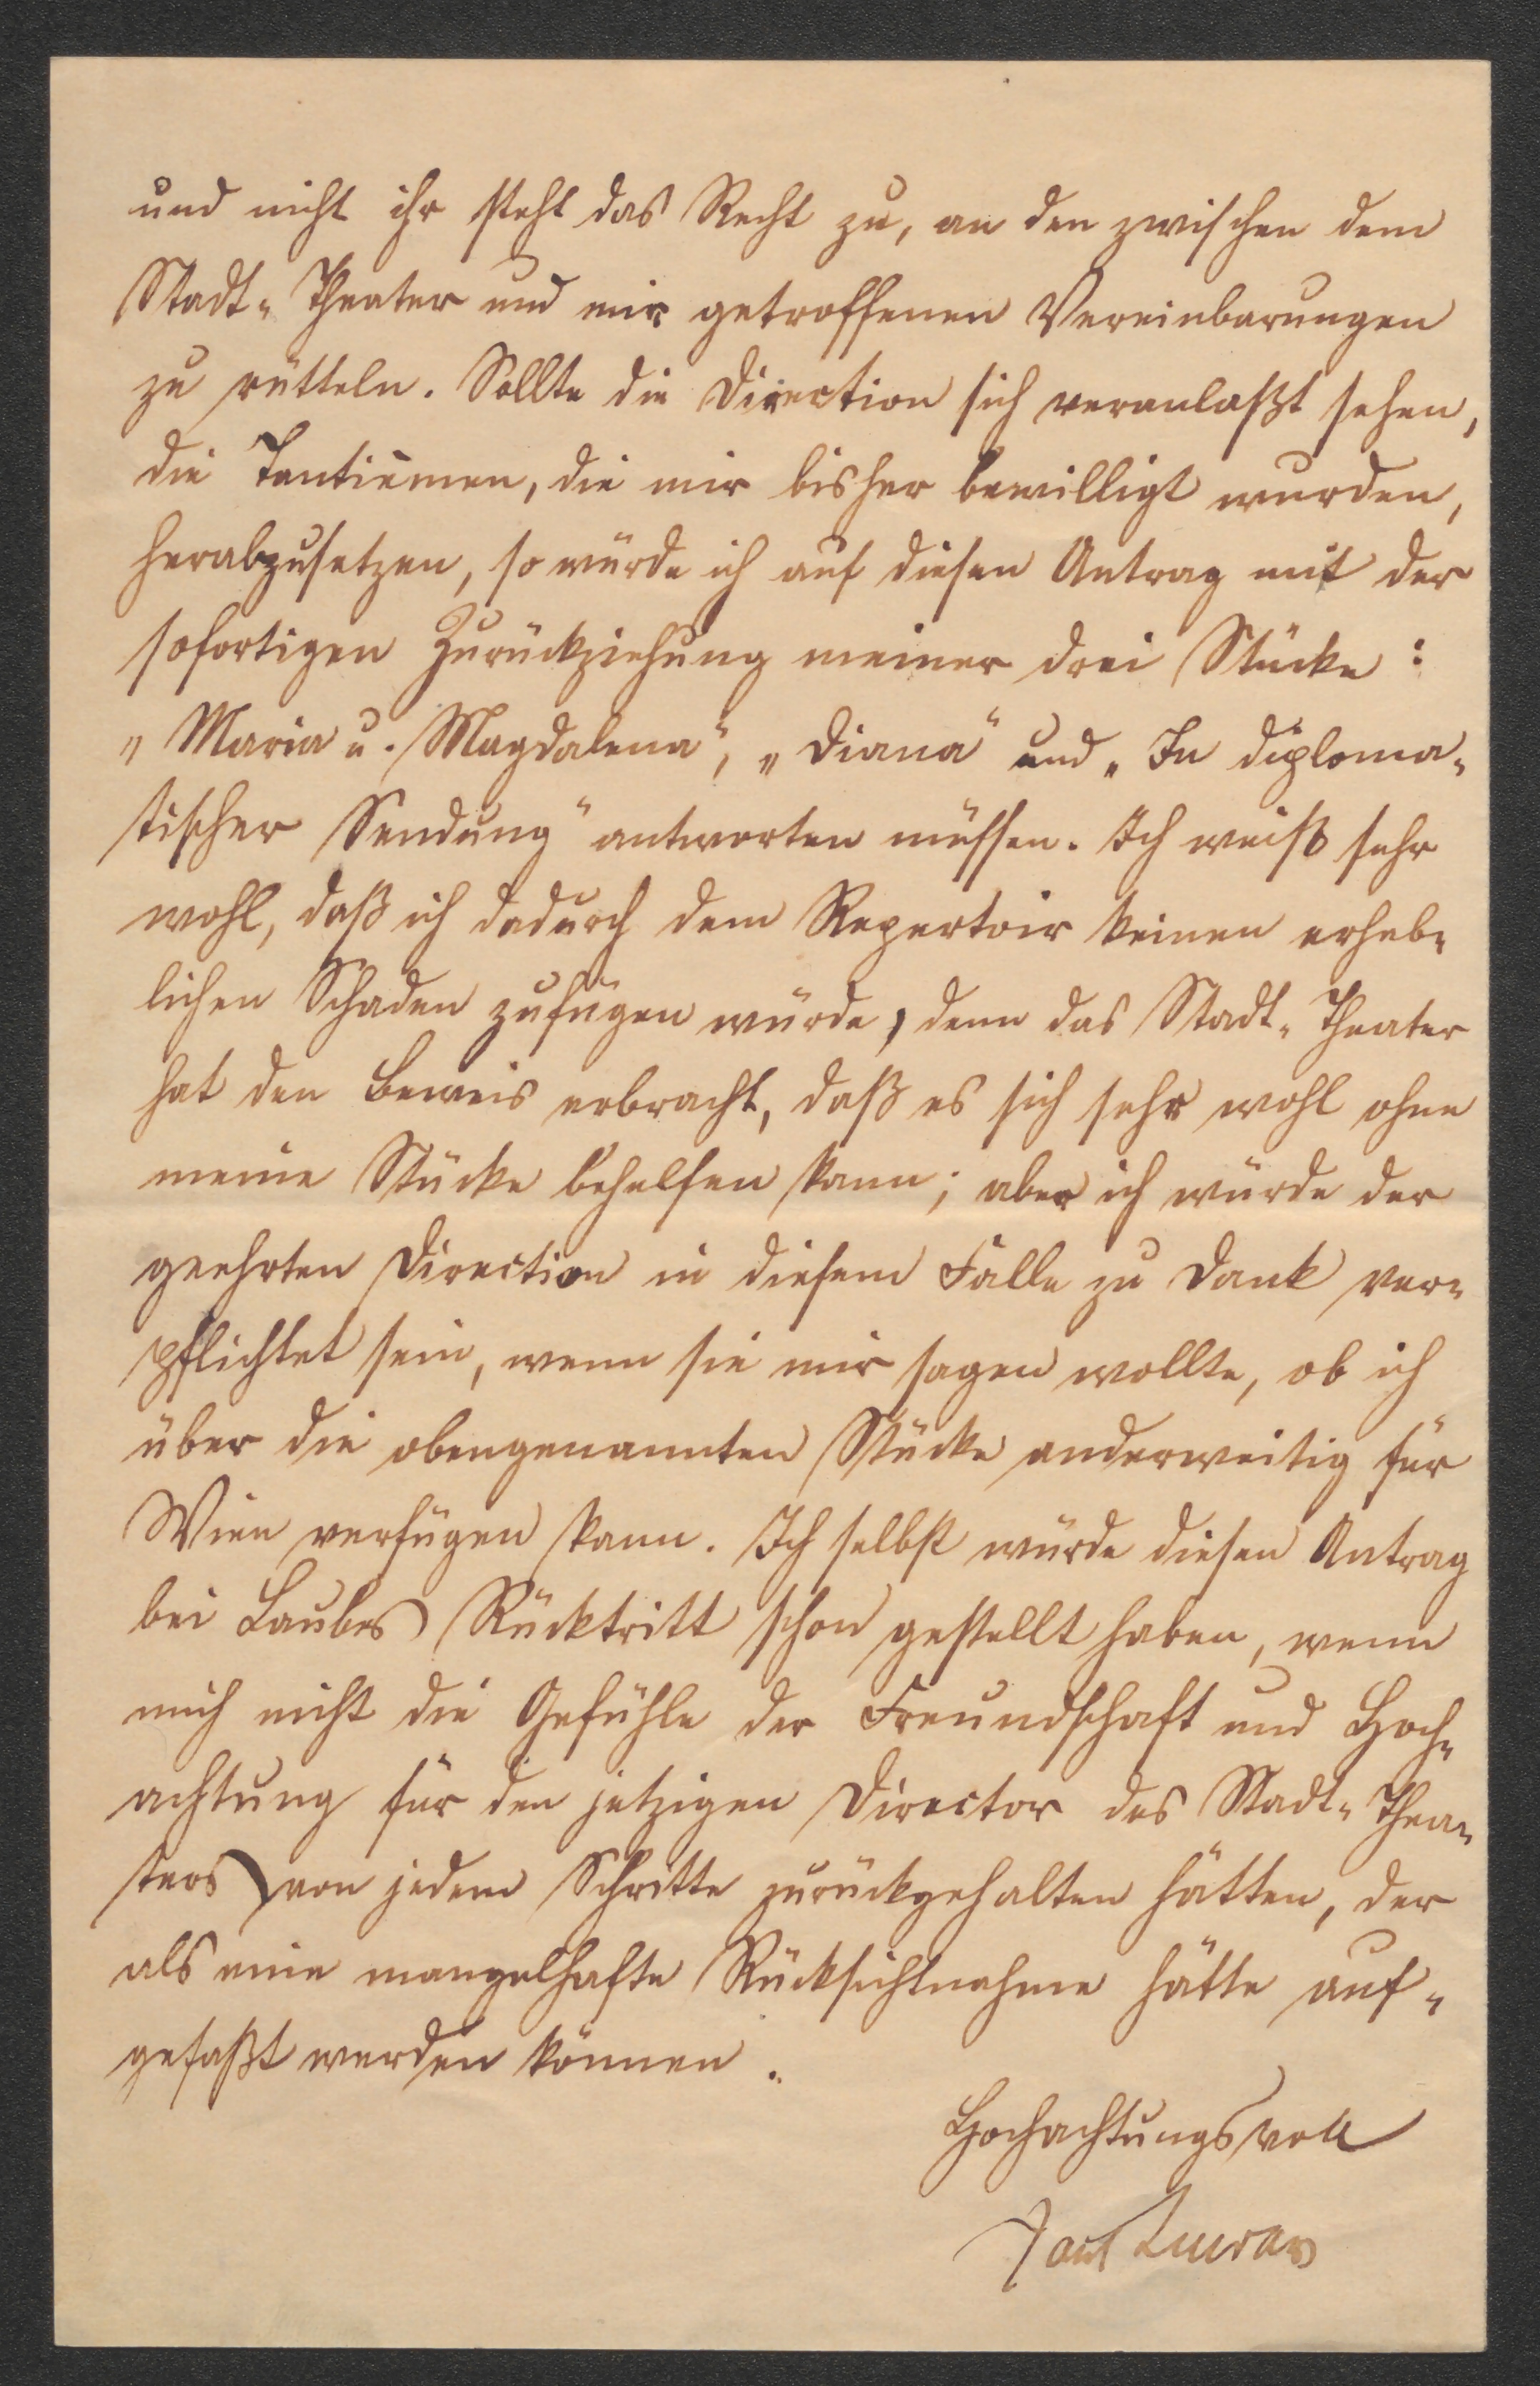 und nicht ihr steht das Recht zu, an den zwischen dem
Stadt-Theater und mir getroffenen Vereinbarungen
zu rütteln. Sollte die Direction sich veranlaßt sehen,
die Tantièmen, die mir bisher bewilligt wurden,
herabzusetzen, so würde ich auf diesen Antrag mit der
sofortigen Zurückziehung meiner drei Stücke:
„Maria u. Magdalena", „Diana" und „In diploma-
tischer Sendung" antworten müssen. Ich weiß sehr
wohl, daß ich dadurch dem Repertoir keinen erheb-
lichen Schaden zufügen würde, denn das Stadt-Theater
hat den Beweis erbracht, daß es sich sehr wohl ohne
meine Stücke behelfen kann; aber ich würde der
geehrten Direction in diesem Falle zu Dank ver-
pflichtet sein, wenn sie mir sagen wollte, ob ich
über die obengenannten Stücke anderweitig für
Wien verfügen kann. Ich selbst würde diesen Antrag
bei Laubes Rücktritt schon gestellt haben, wenn
mich nicht die Gefühle der Freundschaft und Hoch-
achtung für den jetzigen Director des Stadt-Thea-
ters von jedem Schritte zurückgehalten hätten, der
als eine mangelhafte Rücksichtnahme hätte auf-
gefaßt werden können.
Hochachtungsvoll
Paul Lindau